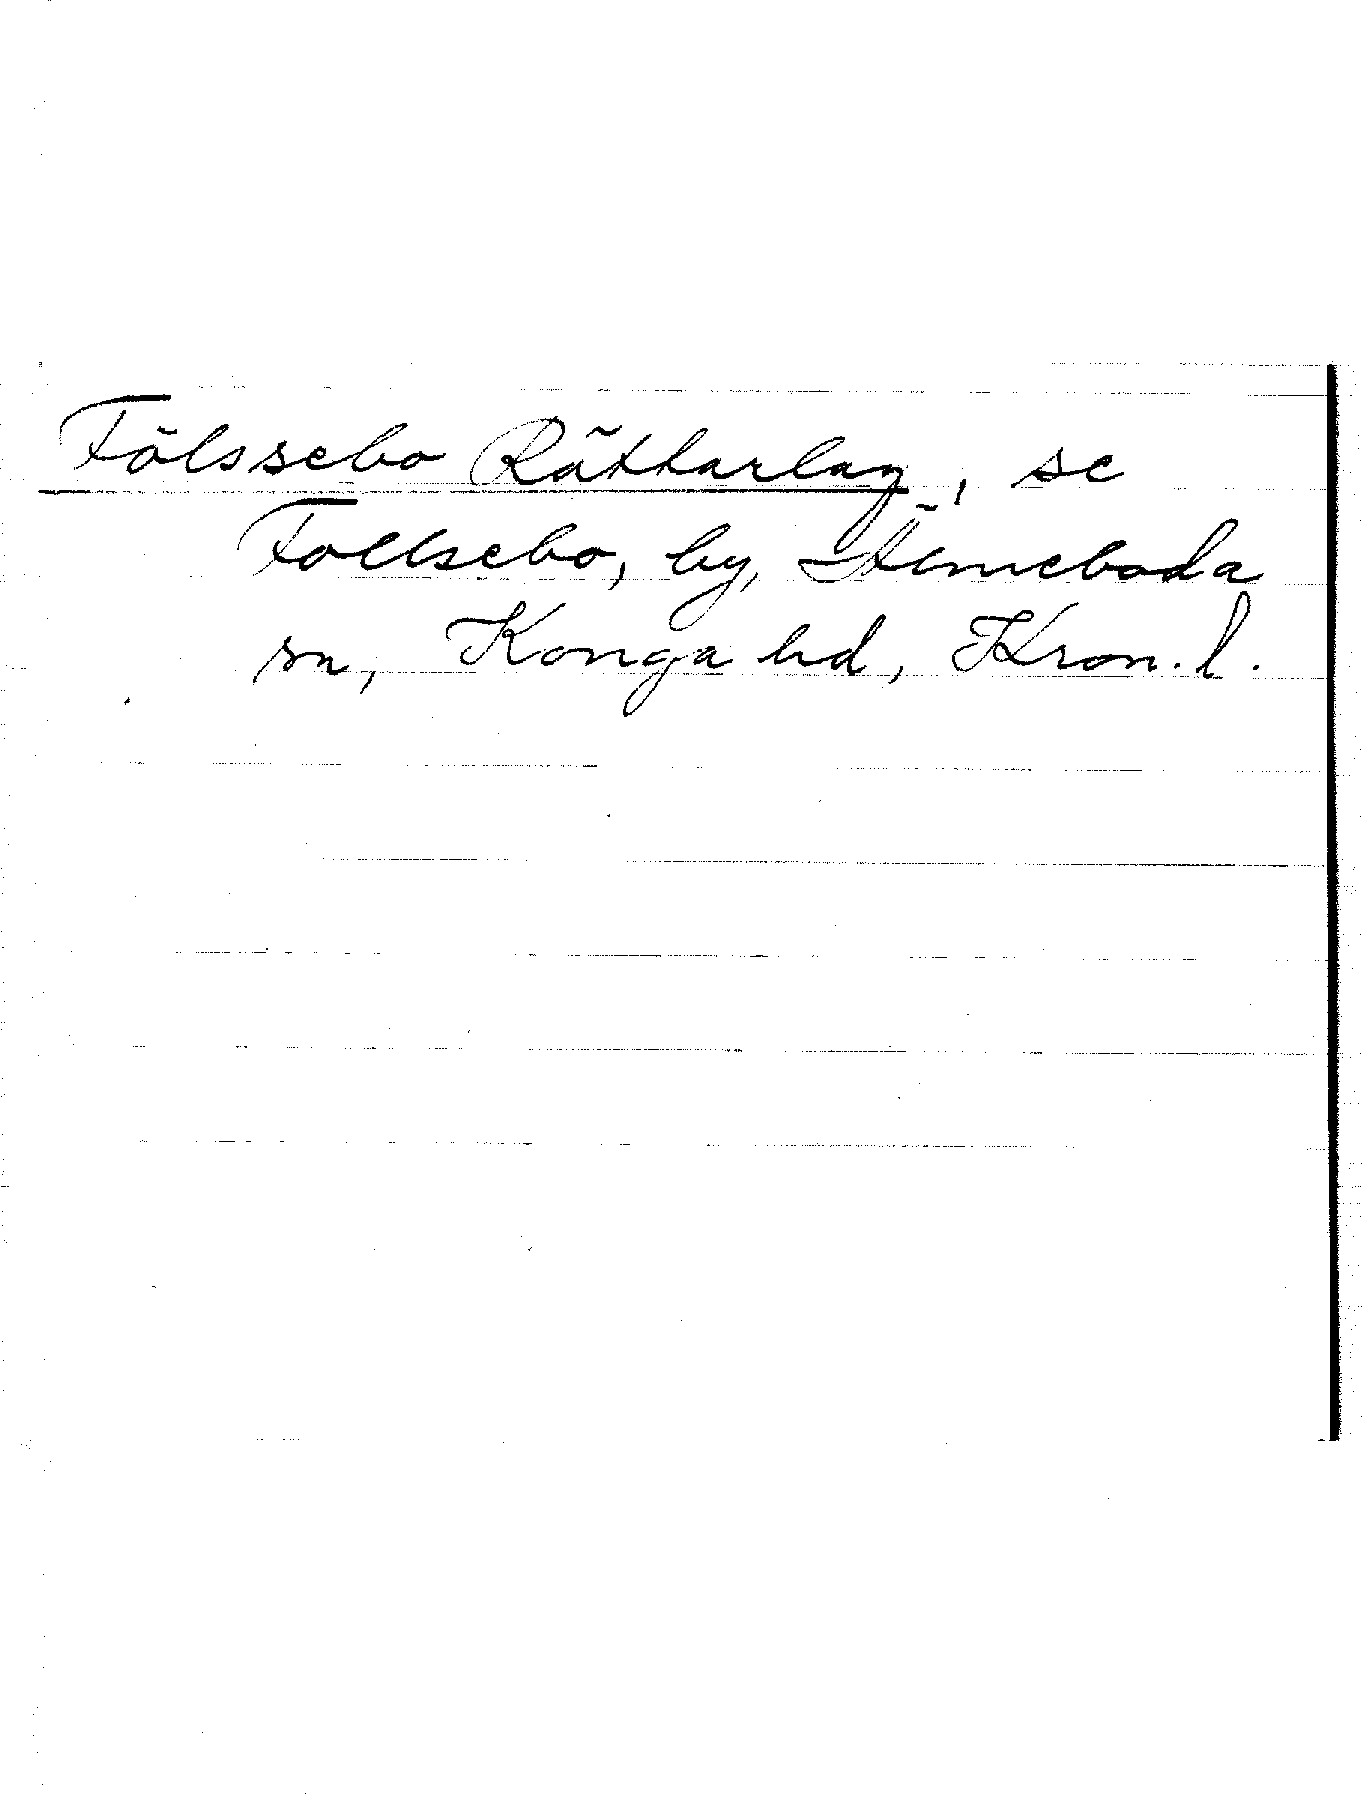 Fölssebo Rättarlag, se
Follsebo, by, Älmeboda
sn, Konga hd, Kron. l.